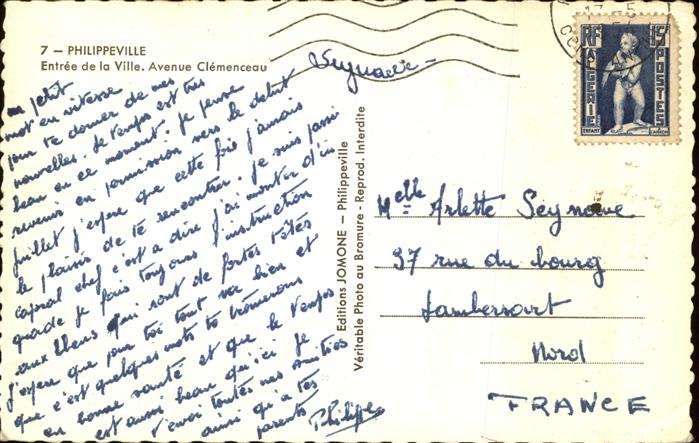 7 — PHILIPPEVILLE
Entrée de la Ville. Avenue Clémenceau
un petit
mot en vitesse
pour te donner de mes
nouvelles. le temps est très
beau en ce moment. je pense
revenir en permission vers le début
juillet j'espère que cette fois j'aurais
le plaisir de te rencontrer. je suis passé
caporal chef c'est a dire j'ai monter d'un
grade je fais toujours l'instruction
aux bleus qui sont de fortes têtes
j'espère que pour toi tout va bien et
que c'est quelques mots te trouverons
en bonne santé et que le temps
est aussi beau qu'ici je
t'envoi toutes mes amitiés
ainsi qu'a tes
parents
Philippe
Editions JOMONE — Philippeville
Véritable Photo au Bromure - Reprod. Interdite
RF
15F
ALGERIE
POSTES
ENFANT
Melle Arlette Seynaeve
37 rue du bourg
Lambersart
Nord
FRANCE